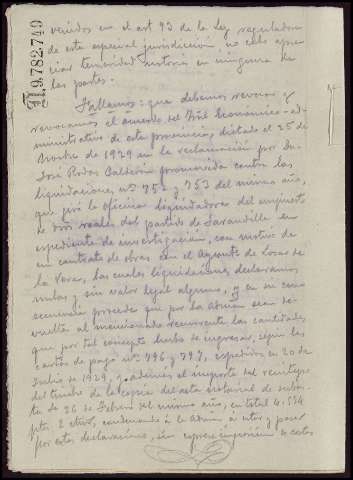 A9.782.749
venidos en el art 93 de la Ley reguladora
de esta especial jurisdicción, no cabe apre-
ciar temeridad notoria en ninguna de
las partes.
Fallamos: que debemos revocar y
revocamos el acuerdo del Trial Económico-ad-
ministrativo de esta provincia, dictado el 25 de
Novbre de 1929 en la reclamación por Dn.
José Rodas Calderón promovida contra las
liquidaciones nos 752 y 753 del mismo año,
que giró la oficina liquidadora del impuesto
de dros reales del partido de Jarandilla en
expediente de investigación, con motivo de
un contrato de obras con el Ayunto de Losar de
la Vera, las cuales liquidaciones declaramos
nulas y sin valor legal alguno, y en su con-
secuencia procede que por la Admon sean de-
vueltas al mencionado recurrente las cantidades
que por tal concepto hubo de ingresar, según las
cartas de pago nos 796 y 797, expedidas en 20 de
Julio de 1929, y además el importe del reintegro
del timbre de la copia del acta notarial de subas-
ta de 26 de Febrero del mismo año, en total 4.554
pts 2 ctmos, condenando a la Admon, a estar y pasar
por estas declaraciones, sin expresa imposición de costas